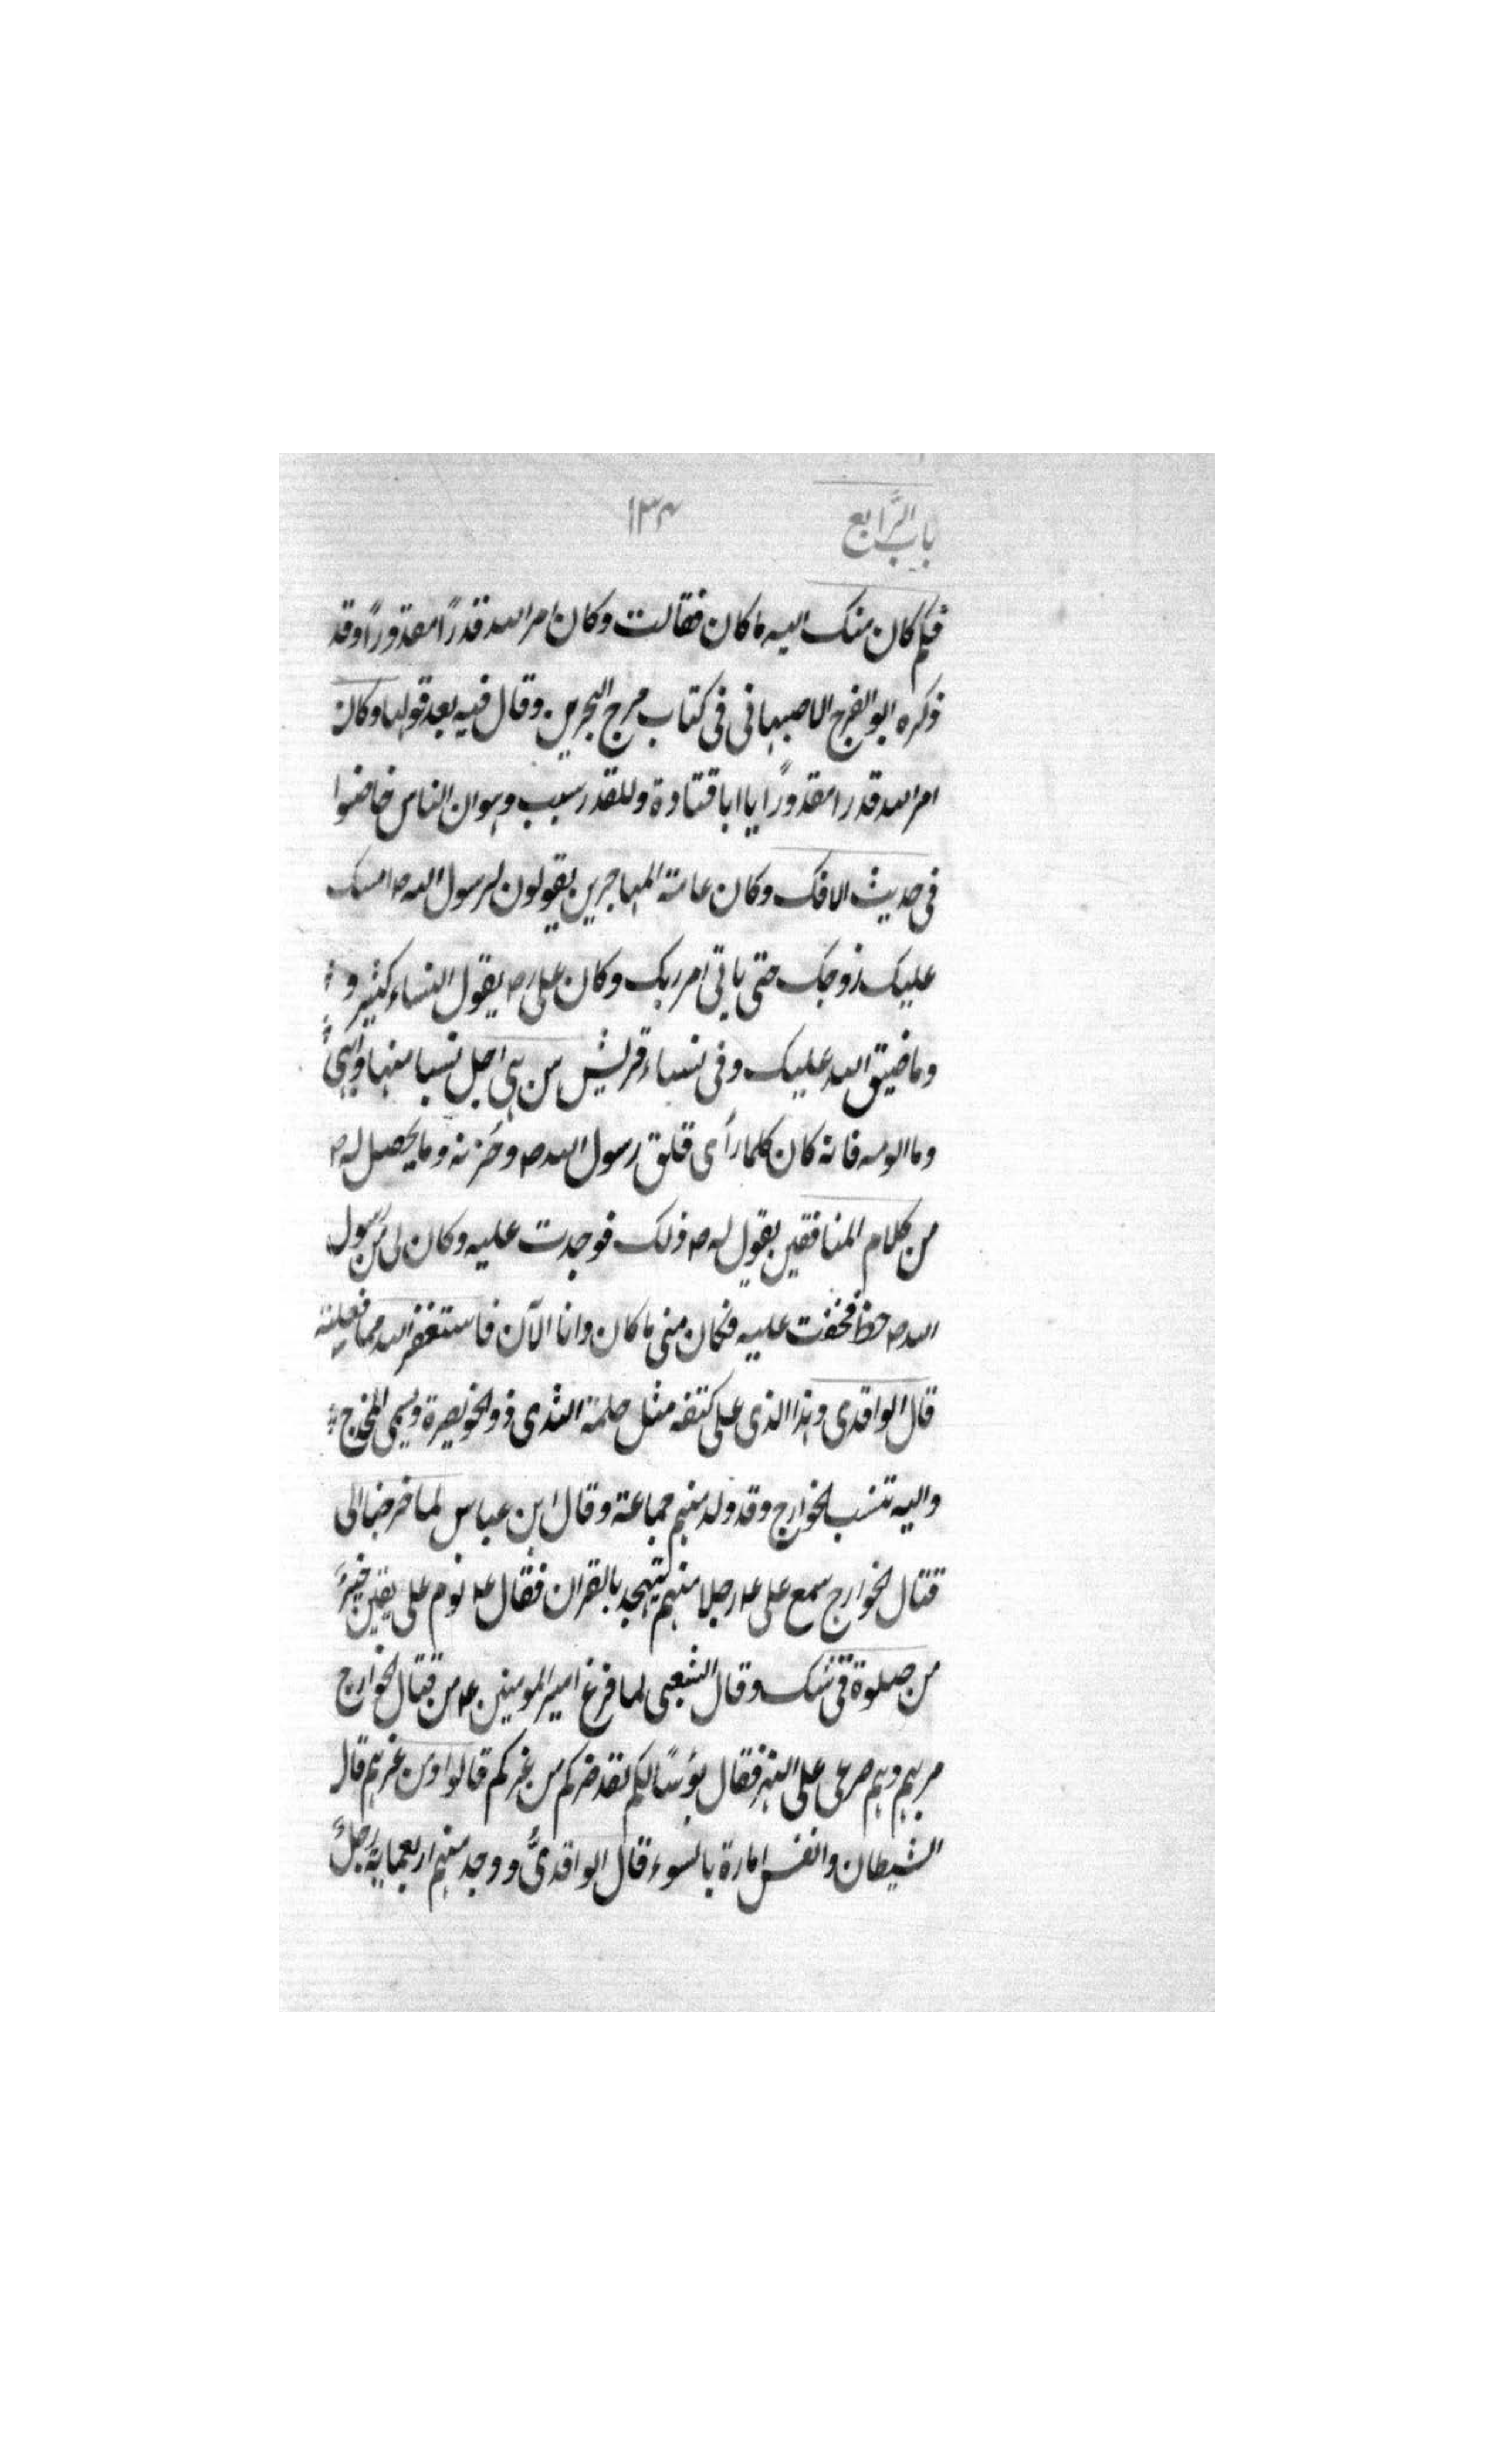 باب الرابع
۱۳۴
فلم كان منك اليه ما كان فقالت وكان امر الله قدرًا مقدورًا وقد
ذكره ابو الفرج الاصبهانى فى كتاب مرج البحرين وقال فيه بعد قولها وكان
امر الله قدرا مقدورًا يا ابا قتادة وللقدر سبب وهو ان الناس خاضوا
فى حديث الافك وكان عامة المهاجرين يقولون لرسول الله ص امسك
عليك زوجك حتى ياتى امر ربك وكان على ص يقول النساء كثير و
وما ضيق الله عليك وفى نساء قريش من هى اجل نسبا منها وابهى
وما الومه فانه كان كلما رأى قلق رسول الله ص وحزنه وما يحصل له ص
من كلام المنافقين يقول له ص ذلك فوجدت عليه وكان لى من رسول
الله ص حظ فخفت عليه فكان منى ما كان وانا الآن فاستغفر الله مما فعلته
قال الواقدى وهذا الذى على كتفه مثل حلمة الثدى ذو الخويصرة ويسمى المخدج
واليه تنسب الخوارج وقد ولد منهم جماعة وقال ابن عباس لما خرجنا الى
قتال الخوارج سمع على ع رجلا منهم يتهجد بالقران فقال ع نوم على يقين خير
من صلوة فى شك وقال الشعبى لما فرغ امير المومنين ع من قتال الخوارج
مر بهم وهم صرعى على النهر فقال بؤسًا لكم لقد ضركم من غركم قالوا ومن غرهم قال
الشيطان وانفس امارة بالسوء قال الواقدىُّ ووجد منهم اربعماية رجل